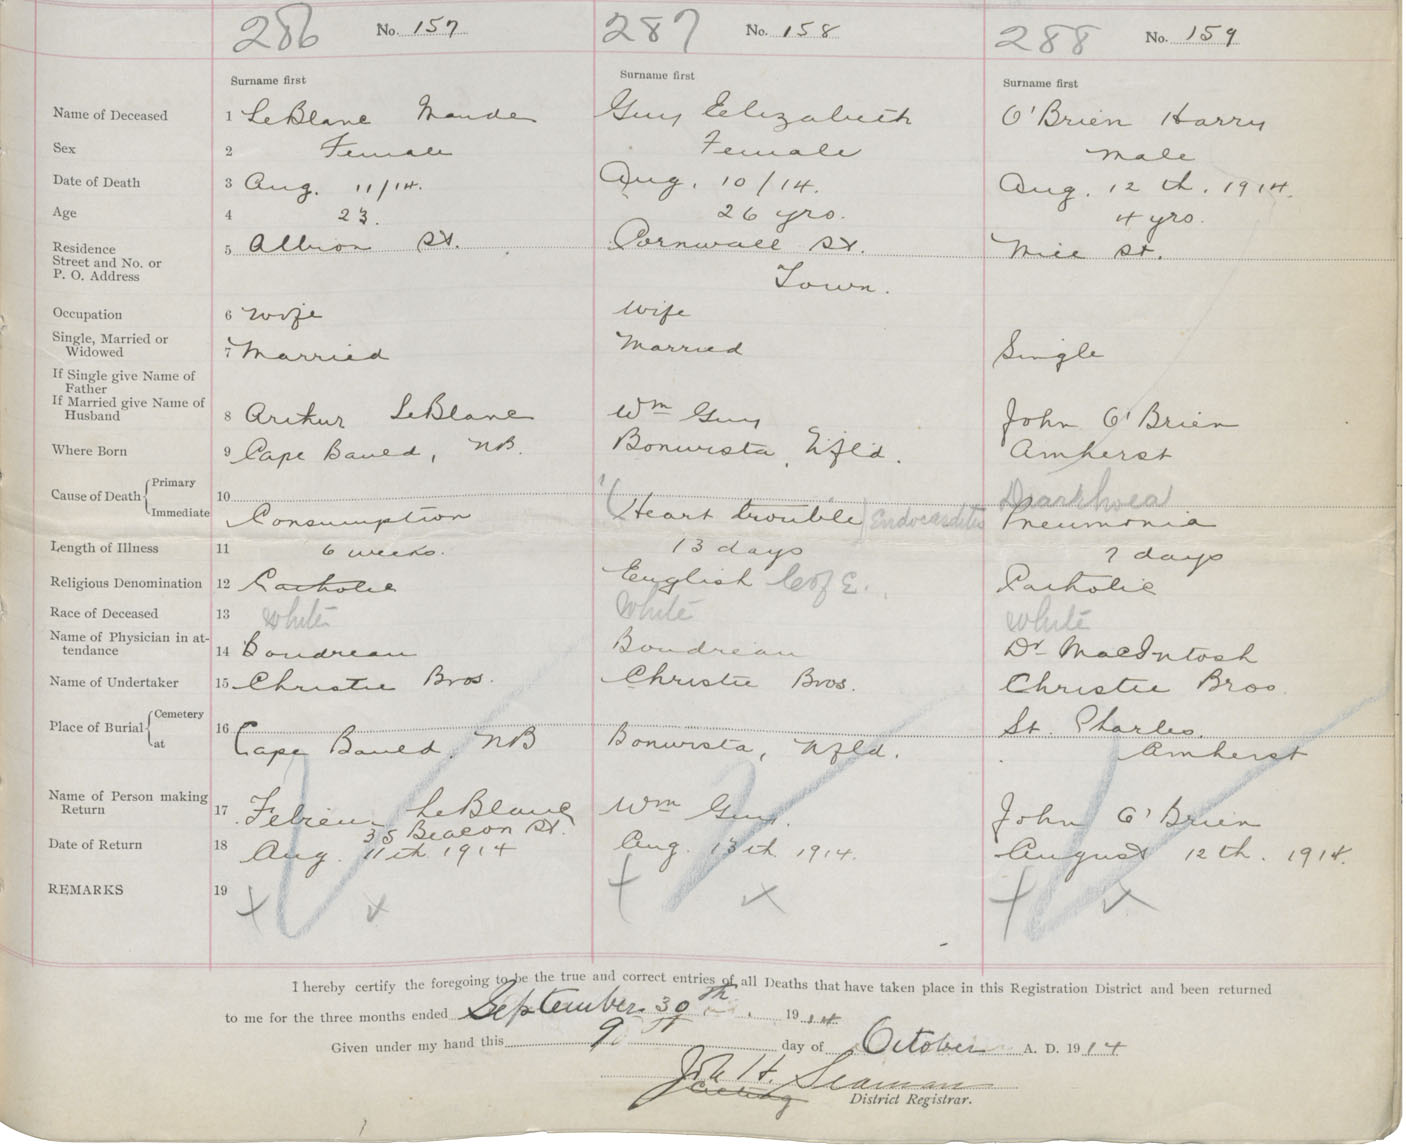 286 No. 157 287 No. 158 288 No. 159
Surname first Surname first Surname first
Name of Deceased 1 LeBlanc Maude Guy Elizabeth O'Brien Harry
Sex 2 Female Female Male
Date of Death 3 Aug. 11/14. Aug. 10/14. Aug. 12th. 1914.
Age 4 23. 26 yrs. 4 yrs.
Residence
Street and No. or 5 Albion St. Cornwall St. Mill St.
P. O. Address Town.
Occupation 6 Wife Wife
Single, Married or
Widowed 7 Married Married Single
If Single give Name of
Father
If Married give Name of
Husband 8 Arthur LeBlanc Wm Guy John O'Brien
Where Born 9 Cape Bauld, NB. Bonavista, Nfld. Amherst
Cause of Death Primary 10 Diarrhoea
Immediate Consumption Heart trouble Endocarditis Pneumonia
Length of Illness 11 6 weeks. 13 days 7 days
Religious Denomination 12 Catholic English C of E. Catholic
Race of Deceased 13 White White White
Name of Physician in at-
tendance 14 Boudreau Boudreau Dr MacIntosh
Name of Undertaker 15 Christie Bros. Christie Bros. Christie Bros.
Place of Burial Cemetery 16 St. Charles.
at Cape Bauld, NB Bonavista, Nfld. Amherst
Name of Person making
Return 17 LeBlanc Wm Guy. John O'Brien
35 Beacon St.
Date of Return 18 Aug. 11th 1914 Aug. 13th. 1914. August 12th. 1914.
REMARKS 19 + x + x + x
I hereby certify the foregoing to be the true and correct entries of all Deaths that have taken place in this Registration District and been returned
to me for the three months ended September 30th 1914
Given under my hand this 9 day of October A. D. 1914
Seaman
Acting District Registrar.